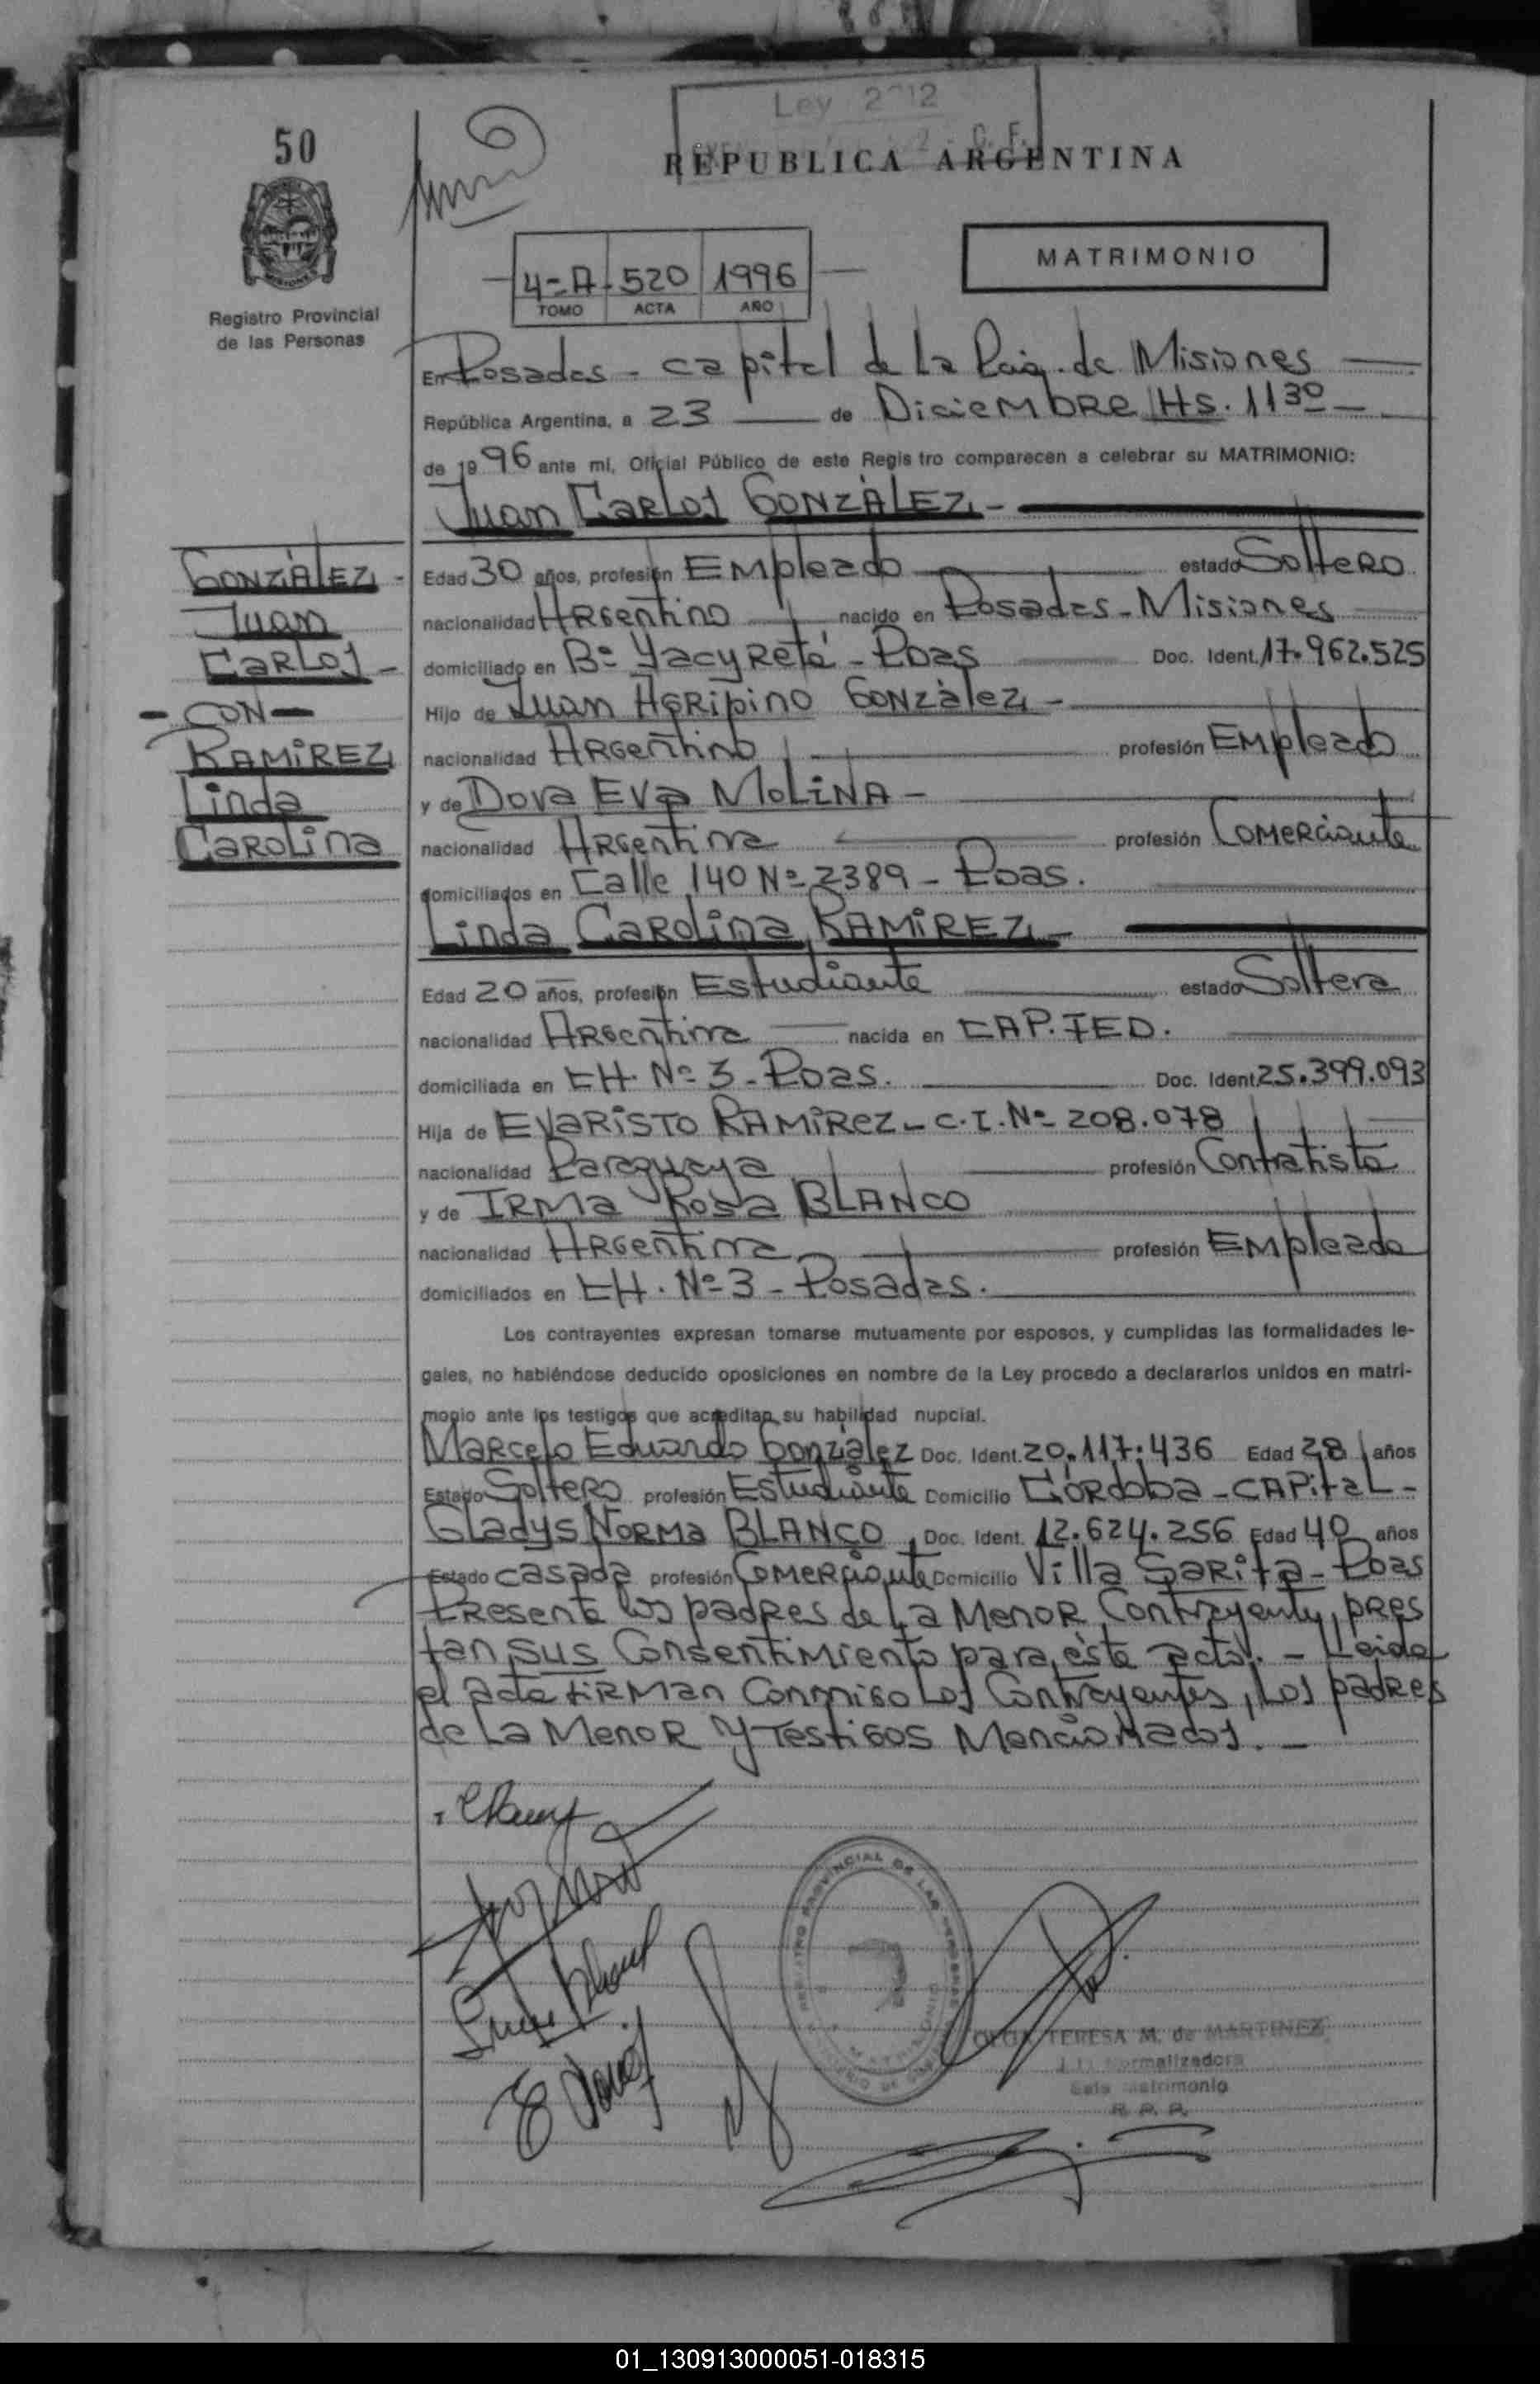 Ley 2
50
REPUBLICA ARGENTINA
MATRIMONIO
4-A 520 1996
TOMO ACTA AÑO
Registro Provincial
de las Personas
En Posadas - capital de La Pcia. de Misiones
República Argentina, a 23 de Diciembre Hs. 11 30
de 1996 ante mí, Oficial Público de este Registro comparecen a celebrar su MATRIMONIO:
Juan Carlos GONZÁLEZ -
GONZÁLEZ -
Juan
Carlos -
- CON -
RAMIREZ
Linda
Carolina
Edad 30 años, profesión Empleado estado Soltero
nacionalidad Argentino nacido en Posadas - Misiones
domiciliado en Bº Yacyretá - Pdas Doc. Ident. 17.962.525
Hijo de Juan Agripino González -
nacionalidad Argentino profesión Empleado
y de Dora Eva MOLINA -
nacionalidad Argentina profesión Comerciante
domiciliados en Calle 140 Nº 2389 - Pdas.
Linda Carolina RAMIREZ -
Edad 20 años, profesión Estudiante estado Soltera
nacionalidad Argentina nacida en CAP. FED.
domiciliada en CH. Nº 3 - Pdas. Doc. Ident. 25.399.093
Hija de EVARISTO RAMIREZ - C.I. Nº 208.078
nacionalidad Paraguaya profesión Contratista
y de IRMA Rosa BLANCO
nacionalidad Argentina profesión Empleada
domiciliados en CH. Nº 3 - Posadas.
Los contrayentes expresan tomarse mutuamente por esposos, y cumplidas las formalidades le-
gales, no habiéndose deducido oposiciones en nombre de la Ley procedo a declararlos unidos en matri-
monio ante los testigos que acreditan su habilidad nupcial.
Marcelo Eduardo González Doc. Ident. 20.117.436 Edad 28 años
Estado Soltero profesión Estudiante Domicilio Córdoba - CAPital -
Gladys Norma BLANCO, Doc. Ident. 12.624.256 Edad 40 años
Estado casada profesión Comerciante Domicilio Villa Sarita - Pdas
Presente los padres de La Menor Contrayente, pres
tan sus Consentimiento para éste acto. - Leida
el acta firman Conmigo Los Contrayentes, Los padres
de La Menor y Testigos Mencionados. -
REGISTRO PROVINCIAL DE LAS PERSONAS
TERESA M. de MARTINEZ
Matrimonio
R. P. P.
01_130913000051-018315